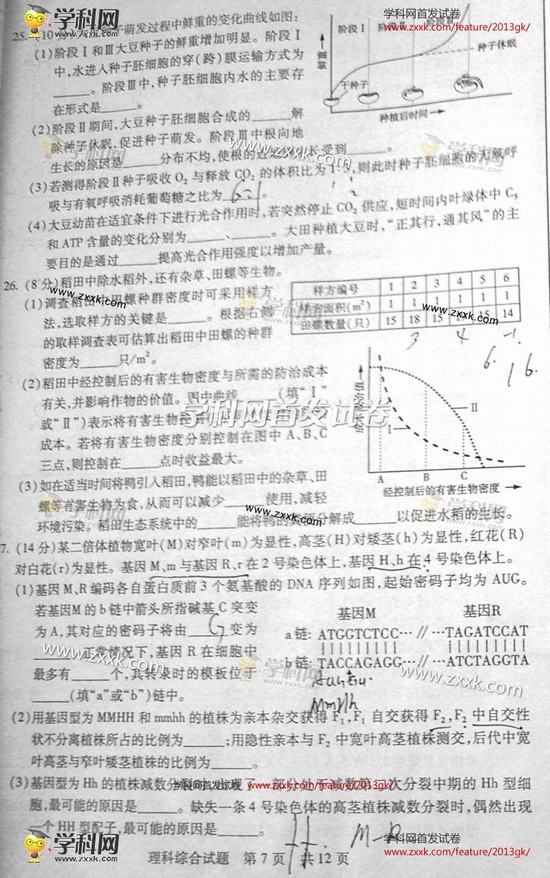 学科网首发试卷
www.zxxk.com/feature/2013gk/
25.(10
萌发过程中鲜重的变化曲线如图:
(1)阶段Ⅰ和Ⅲ大豆种子的鲜重增加明显。阶段Ⅰ
中,水进入种子胚细胞的穿(跨)膜运输方式为
。阶段Ⅲ中,种子胚细胞内水的主要存
在形式是 。
鲜重
阶段Ⅰ 阶段Ⅱ 阶段Ⅲ
种子休眠
干种子
种植后时间
(2)阶段Ⅱ期间,大豆种子胚细胞合成的 解
除种子休眠,促进种子萌发。阶段Ⅲ中根向地
生长的原因是 分布不均,使根的 长受到 。
(3)若测得阶段Ⅱ种子吸收O₂与释放CO₂的体积比为1:3,则此时种子胚细胞的无氧呼
吸与有氧呼吸消耗葡萄糖之比为 。
6:1
(4)大豆幼苗在适宜条件下进行光合作用时,若突然停止CO₂供应,短时间内叶绿体中C₅
和ATP含量的变化分别为 、 。大田种植大豆时,“正其行,通其风”的主
要目的是通过 提高光合作用强度以增加产量。
26.(8分)稻田中除水稻外,还有杂草、田螺等生物。
(1)调查稻田中田螺种群密度时可采用样方
法,选取样方的关键是 。根据右侧
的取样调查表可估算出稻田中田螺的种群
密度为 只/m²。
样方编号 1 2 3 4 5 6
样方面积(m²) 1 1 1 1 1 1
田螺数量(只) 15 18 15 15 14
(2)稻田中经控制后的有害生物密度与所需的防治成本
有关,并影响作物的价值。图中曲线 (填“Ⅰ”
或“Ⅱ”)表示将有害生物
成本。若将有害生物密度分别控制在图中A、B、C
三点,则控制在 点时收益最大。
Ⅰ
Ⅱ
A B C
经控制后的有害生物密度
(3)如在适当时间将鸭引入稻田,鸭能以稻田中的杂草、田
螺等有害生物为食,从而可以减少 使用,减轻
环境污染。稻田生态系统中的 能将鸭的粪便分解成 以促进水稻的生长。
7.(14分)某二倍体植物宽叶(M)对窄叶(m)为显性,高茎(H)对矮茎(h)为显性,红花(R)
对白花(r)为显性。基因M、m与基因R、r在2号染色体上,基因H、h在4号染色体上。
(1)基因M、R编码各自蛋白质前3个氨基酸的DNA序列如图,起始密码子均为AUG。
若基因M的b链中箭头所指碱基C突变
为A,其对应的密码子将由 变为
。正常情况下,基因R在细胞中
最多有 个,其转录时的模板位于
(填“a”或“b”)链中。
基因M 基因R
a链: ATGGTCTCC… // …TAGATCCAT
b链: TACCAGAGG… // …ATCTAGGTA
MmHh
(2)用基因型为MMHH和mmhh的植株为亲本杂交获得F₁,F₁自交获得F₂,F₂中自交性
状不分离植株所占的比例为 ;用隐性亲本与F₂中宽叶高茎植株测交,后代中宽
叶高茎与窄叶矮茎植株的比例为 。
(3)基因型为Hh的植株减数分裂时,出现了一部分处于减数第二次分裂中期的Hh型细
胞,最可能的原因是 。缺失一条4号染色体的高茎植株减数分裂时,偶然出现
一个HH型配子,最可能的原因是 。
理科综合试题 第7页 共12页
学科网首发试卷
www.zxxk.com/feature/2013gk/